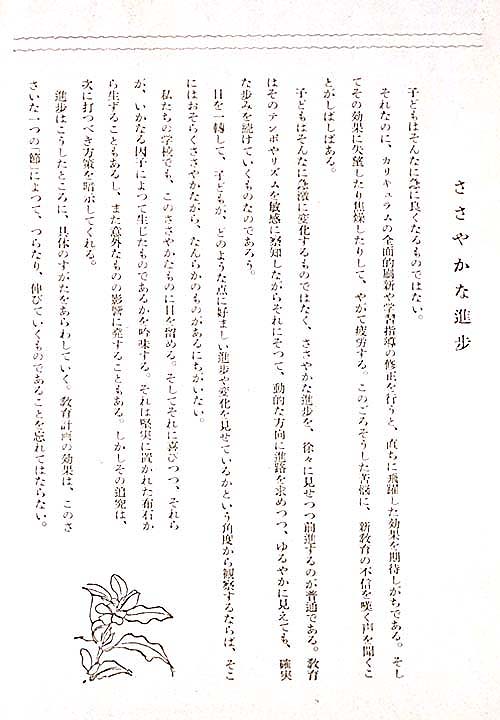 ささやかな進歩
子どもはそんなに急に良くなるものではない。
それたのに、カリキュラムの全面的刷新や学習指導の修正を行うと、直ちに飛躍した効果を期待しがちである。そし
てその効果に失望したり焦燥したりして、やがて疲労する。このごろそうした苦悩に、新教育の不信を嘆く声を聞くこ
とがしばしばある。
子どもはそんなに急激に変化するものではなく、ささやかな進歩を、徐々に見せつつ前進するのが普通である。教育
はそのテンポやリズムを敏感に察知しながらそれにそつて、動的な方向に進路を求めつつ、ゆるやかに見えても、確実
な歩みを続けていくものなのであろう。
目を一轉して、子どもが、どのような点に好ましい進歩や変化を見せているかという角度から観察するならば、そこ
にはおそらくささやかながら、なんらかのものがあるにちがいない。
私たちの学校でも、このささやかたものに目を留める。そしてそれに喜びつつ、それら
が、いかなる因子によつて生じたものであるかを吟味する。それは堅実に置かれた布石か
ら生ずることもあるし、また意外なものの影響に発することもある。しかしその追究は、
次に打つべき方策を暗示してくれる。
進歩はこうしたところに、具体のすがたをあらわしていく。教育計画の効果は、このさ
さいな一つの「節」によつて、つらなり、伸びていくものであることを忘れてはならない。